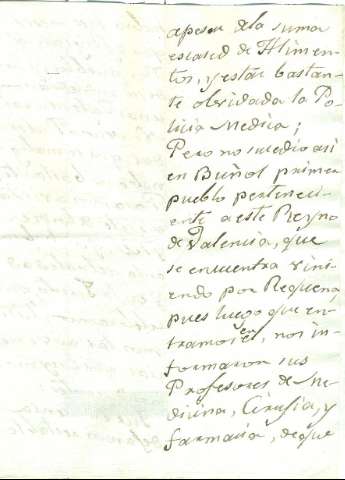 apesar dela suma
escased de Alimen-
tos, y estar bastan-
te olvidada la Po-
licia Medica;
Pero no sucedio asi
en Buñol primer
pueblo perteneci-
ente a este Reyno
de Valencia, que
se encuentra vini-
endo por Requena,
pues luego que en-
tramos en el, nos in-
formaron sus
Profesores de Me-
dicina, Cirusia, y
farmacia, deque